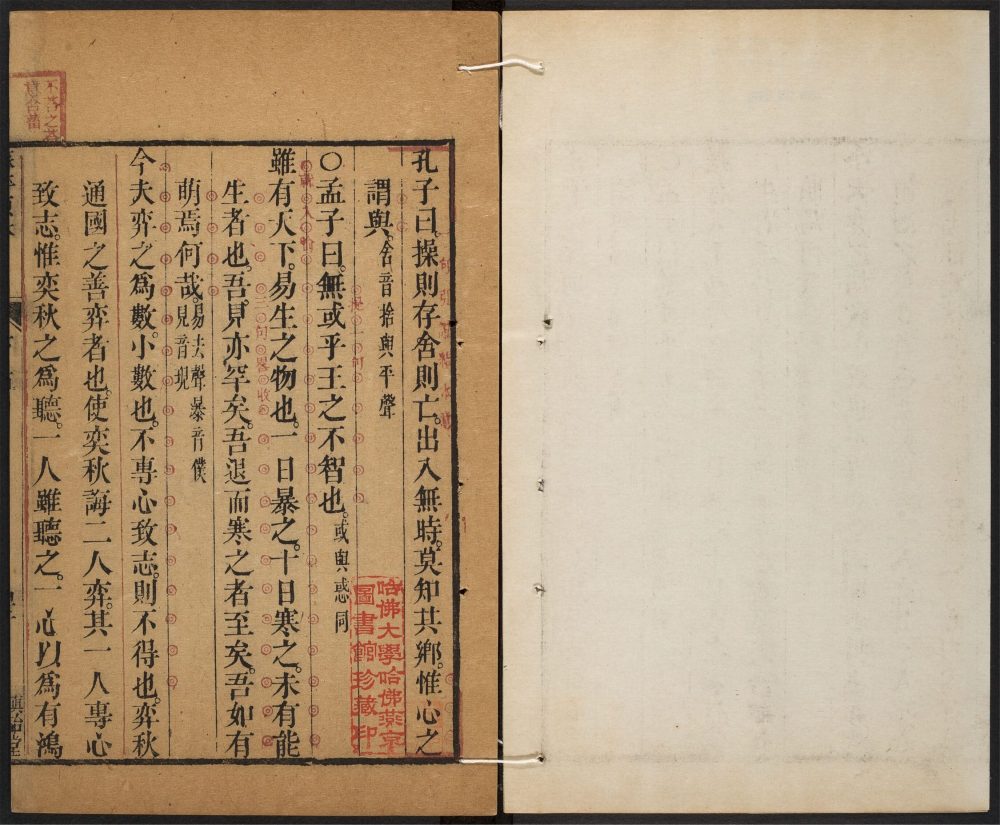 孔子曰。操則存舍則亡。出入無時。莫知其鄉。惟心之
謂與。舍音捨與平聲
○孟子曰。無或乎王之不智也。或與惑同
雖有天下。易生之物也。一日暴之。十日寒之。未有能
生者也。吾見亦罕矣。吾退而寒之者至矣。吾如有
萌焉何哉。易去聲暴音僕
見音現
今夫弈之爲數。小數也。不專心致志。則不得也。弈秋
通國之善弈者也。使奕秋誨二人弈。其一人專心
致志。惟奕秋之爲聽。一人雖聽之。一心以爲有鴻
慎詒堂
哈佛大學哈佛燕京
圖書館珍藏印
三句略收